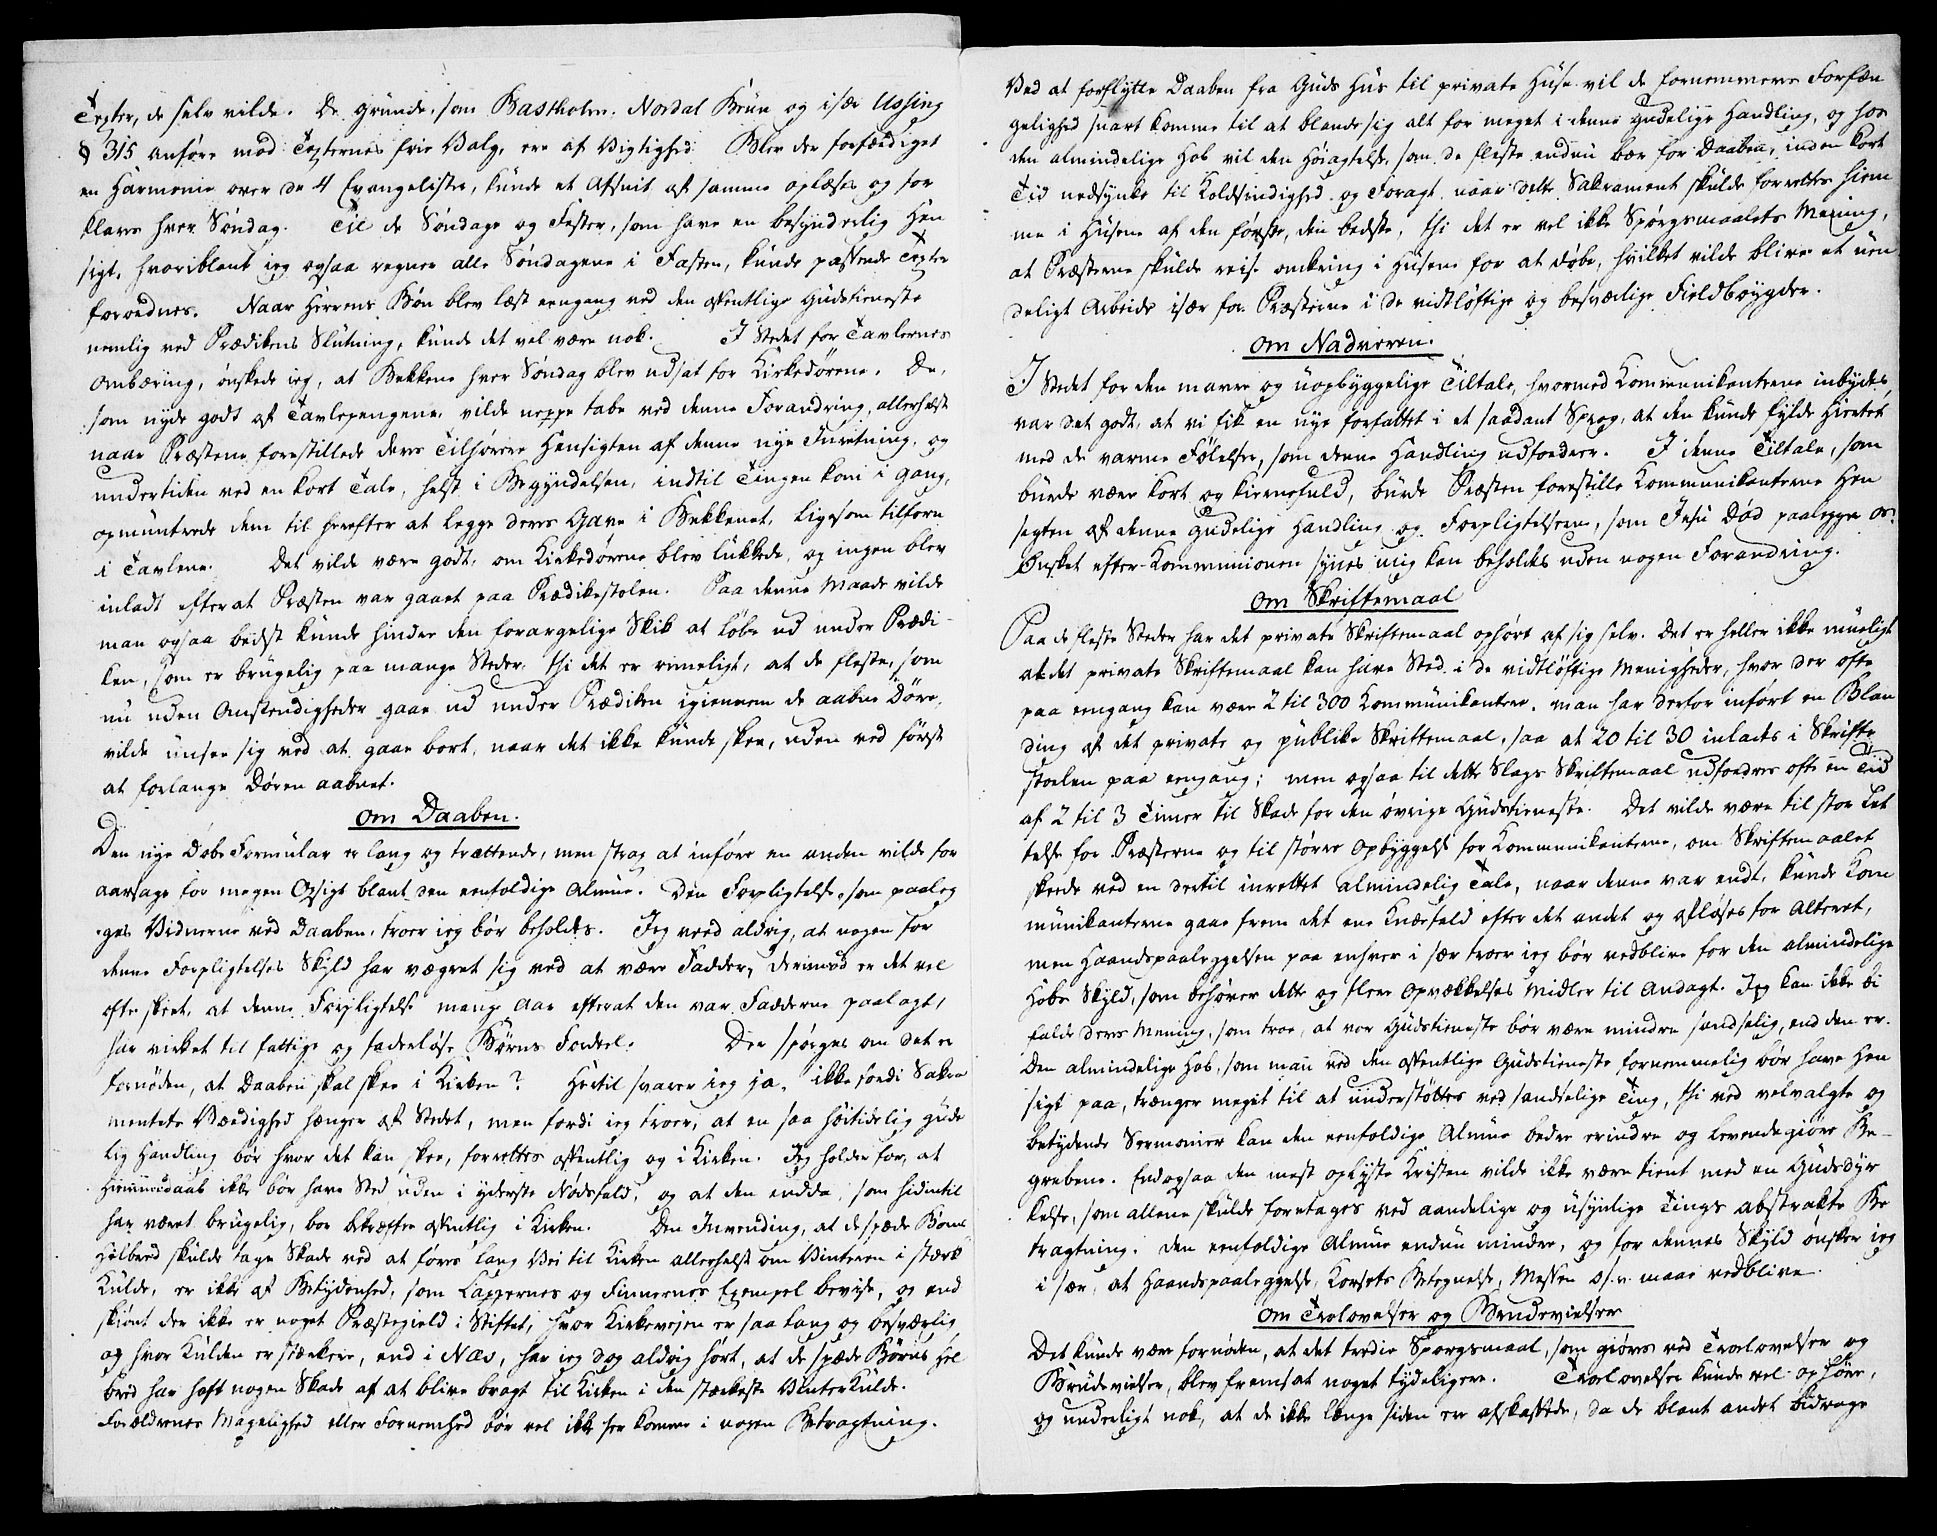 Texter, de selv vilde. De grunde, som Bastholm, Nordal Brun og især Ussing
§ 315 anføre mod Texternes frie Valg, ere af Vigtighed. Blev der forfærdiget
en Harmonie over de 4 Evangelister, kunde et Afsnit af samme oplæses og for
klares hver Søndag. Til de Søndage og Fester, som have en besynderlig Hen
sigt, hvoriblant ieg ogsaa regner alle Søndagene i Fasten, kunde passende Texter
forordnes. Naar Herrens Bøn blev læst eengang ved den offentlige Gudstieneste
nemlig ved Prædikens Slutning, kunde det vel være nok. I Stedet for Tavlernes
ombæring, ønskede ieg, at Bekkene hver Søndag blev udsat for Kirkedørene. De,
som nyde godt af Tavlepengene, vilde neppe tabe ved denne Forandring, allerhelst
naar Præstene forestillede deres Tilhørere Hensigten af denne nye Inretning, og
undertiden ved en kort Tale, helst i Begyndelsen, indtil Tingen kom i gang,
opmuntrede dem til herefter at legge deres Gave i Bekkenet, ligesom tilforn
i Tavlene. Det vilde være godt, om Kirkedørene blev lukkede, og ingen blev
inladt efter at Præsten var gaaet paa Prædikestolen. Paa denne Maade vilde
man ogsaa bedst kunde hindre den forargelige Skik at løbe ud under Prædi-
ken, som er brugelig paa mange Steder, thi det er rimeligt, at de fleste, som
nu uden Omstendigheder gaae ud under Prædiken igiennem de aabne Døre,
vilde unsee sig ved at gaae bort, naar det ikke kunde skee, uden ved først
at forlange Døren aabnet.
Om Daaben.
Den nye Døbe Formular er lang og trættende, men strax at inføre en anden vilde for
aarsage for megen Opsigt blant den eenfoldige Almue. Den Forpligtelse, som paaleg
ges Vidnerne ved Daaben, troer ieg bør beholdes. Jeg veed aldrig, at nogen for
denne Forpligtelses Skyld har vægret sig ved at være Fadder, derimod er det vel
ofte skeet, at denne Forpligtelse mange Aar efterat den var Fadderne paalagt,
har virket til fattige og faderløse Børns Fordeel. Der spørges om det er
fornøden, at Daaben skal skee i Kirken? Hertil svarer ieg ja, ikke fordi Sakra
mentets Værdighed hænger af Stedet, men fordi ieg troer, at en saa høitidelig gude
lig Handling bør hvor det kan skee, forrettes offentlig og i Kirken. Jeg holder for, at
Hiemmedaab ikke bør have Sted uden i yderste Nødsfald, og at den endda, som hidintil
har været brugelig, bør bekræftes offentlig i Kirken. Den Invending, at de spæde Børns
Helbred skulde tage Skade ved at føres lang Vei til Kirken allerhelst om Vinteren i stærk
Kulde, er ikke af Betydenhed, som Lappernes og Finnernes Exempel bevise, og end
skiønt der ikke er noget Præstegield i Stiftet, hvor Kirkeveien er saa lang og besværlig
og hvor Kulden er stærkere, end i Næs, har ieg dog aldrig hørt, at de spæde Børns Hel
bred har haft nogen Skade af at blive bragt til Kirken i den stærkeste Vinter Kulde.
Forældrenes Magelighed eller Fornemhed bør vel ikke her komme i nogen Betragtning.
Ved at forflytte Daaben fra Guds Hus til private Huse vil de fornemmeres Forfæn
gelighed snart komme til at blande sig alt for meget i denne gudelige Handling, og hos
den almindelige Hob vil den Høiagtelse, som de fleste endnu bær for Daaben, inden kort
Tid nedsynke til Koldsindighed og Foragt, naar dette Sakrament skulde forrettes hiem
me i Husene af den første, den bedste, thi det er vel ikke Spørgsmaalets Mening,
at Præsterne skulde reise omkring i Husene for at døbe, hvilket vilde blive et uen
deligt Arbeide især for Præsterne i de vidtløftige og besværlige Fieldbøygder.
Om Nadveren.
I Stedet for den mavre og uopbyggelige Tiltale, hvormed Kommunikanterne inbydes
var det godt, at vi fik en nye forfattet i et saadant Sprog, at den kunde fylde Hiertet
med de varme Følelser, som denne Handling udfordrer. I denne Tiltale, som
burde være kort og kiernefuld, burde Præsten forestille Kommunikanterne Hen
sigten af denne gudelige Handling og Forpligtelserne, som Jesu Død paalegge os.
Ønsket efter Kommunionen synes mig kan beholdes uden nogen Forandring.
Om Skriftemaal
Paa de fleste Steder har det private Skriftemaal ophørt af sig selv. Det er heller ikke mueligt
at det private Skriftemaal kan have Sted i de vidtløftige Menigheder, hvor der ofte
paa eengang kan være 2 til 300 Kommunikantere. Man har derfor inført en Blan
ding af det private og publike Skriftemaal, saa at 20 til 30 inlades i Skrifte
stoelen paa eengang; men ogsaa til dette Slags Skriftemaal udfordres ofte en Tid
af 2 til 3 Timer til Skade for den øvrige Gudstieneste. Det vilde være til stor Let
telse for Præsterne og til større Opbyggelse for Kommunikanterne, om Skriftemaalet
skeede ved en dertil inrettet almindelig Tale, naar denne var endt, kunde Kom
munikanterne gaae frem det ene Knæfald efter det andet og afløses for Alteret,
men Haandspaaleggelsen paa enhver i sær troer ieg bør vedblive for den almindelige
Hobs Skyld, som behøver dette og flere Opvækkelses Midler til Andagt. Jeg kan ikke bi
falde deres Mening, som troe, at vor Gudstieneste bør være mindre sandselig, end den er.
Den almindelige Hob, som man ved den offentlige Gudstieneste fornemmelig bør have Hen
sigt paa, trænger meget til at understøttes ved sandselige Ting, thi ved velvalgte og
betydende Sermonier kan den eenfoldige Almue bedre erindre og levendegiøre Be-
grebene. Endogsaa den mest oplyste Kristen vilde ikke være tient med en Gudsdyr
kelse, som allene skulde foretages ved aandelige og usynlige Tings abstrakte Be
tragtning. Den eenfoldige Almue endnu mindre, og for dennes Skyld ønsker ieg
i sær, at Haandspaaleggelse, Korsets Betegnelse, Messen o. s. v. maae vedblive.
Om Trolovelser og Brudevielser
Det kunde være fornøden, at det tredie Spørgsmaal, som giøres ved Trolovelser og
Brudevielser, blev fremsat noget tydeligere. Trolovelser kunde vel ophøre,
og underligt nok, at de ikke længe siden ere afskaffede, da de blant andet bidrage